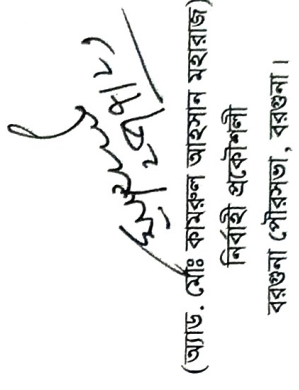 (অ্যাড. মোঃ কামরুল আহসান মহারাজ)
নির্বাহী প্রকৌশলী
বরগুনা পৌরসভা, বরগুনা।